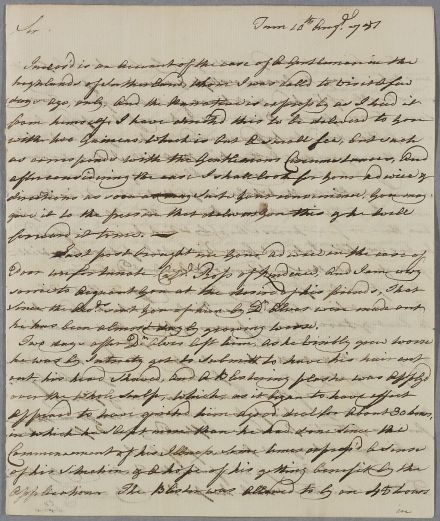 Sir
Inclosed is an Account of the case of a Gentleman in the
highlands of Sutherland, whom I was called to visit a few
days ago, only, and the Narrative is exprest as I had it
from himself, I have the this to be delivered to you
with two Guineas, which is but a small fee, but such
as corresponds with the Gentlemans Circumstances, and
after considering the case I shall look for your advice &
directions as soon as may suit your conveniency, you may
give it to the person that delivers you this & he will
forward it to me.
Last post brought me Yours advice in the case of
Poor unfortunate Capt. Ross of , And I am very
sorrie to Acquaint you at the desire of his friends, That
since the sent you of him by Dr. were made out
he has been almost dayly growing worse.
Two days after Dr. left him, as he visibly grew worse
he was by Intreaty got to submitt to have his hair cut
and his head Shaved, and a Blistering plaster was Applyd
over the whole Scalp, which as it began to have effect
Appeared to have quieted him a good deal for About 30 hours,
in which he slept more than he had done since the
Commencement of his Illness, some times exprest a sense
of his situation & a hope of his getting benefit by the
Application. The Blister was allowed to ly on 45 hours